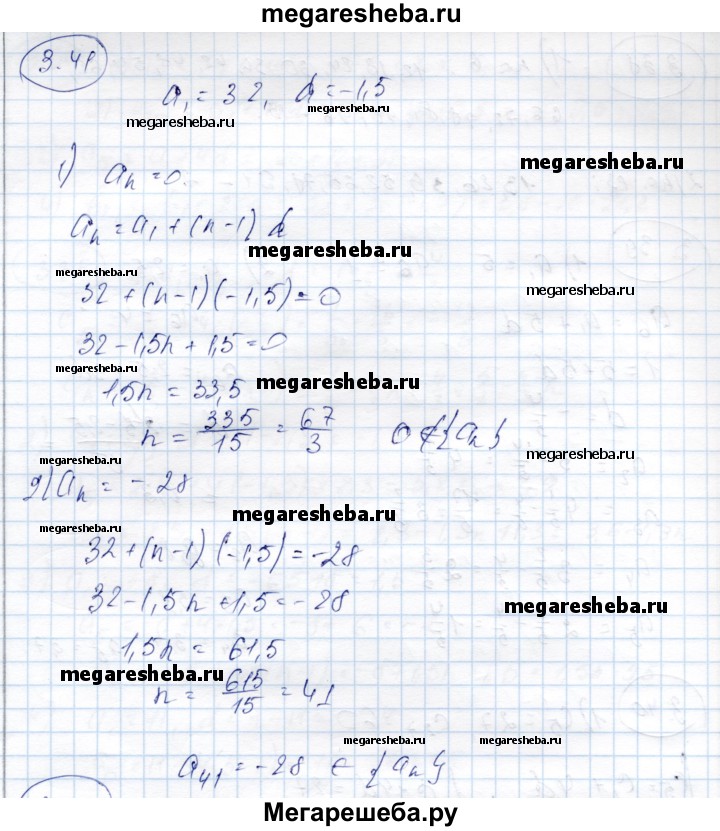 megaresheba.ru
3.41
a₁ = 32, d = -1,5
megaresheba.ru
megaresheba.ru
1) aₙ = 0.
megaresheba.ru
aₙ = a₁ + (n-1) d
megaresheba.ru
megaresheba.ru
32 + (n-1)(-1,5) = 0
megaresheba.ru
32 - 1,5n + 1,5 = 0
megaresheba.ru
1,5n = 33,5
megaresheba.ru
n = 335/15 = 67/3 0 ∉ {aₙ}
megaresheba.ru
megaresheba.ru
2) aₙ = - 28
megaresheba.ru
megaresheba.ru
32 + (n-1)(-1,5) = -28
32 - 1,5n + 1,5 = -28
megaresheba.ru
1,5n = 61,5
megaresheba.ru
n = 615/15 = 41
megaresheba.ru
megaresheba.ru
a₄₁ = -28 ∈ {aₙ}
Мегарешеба.ру